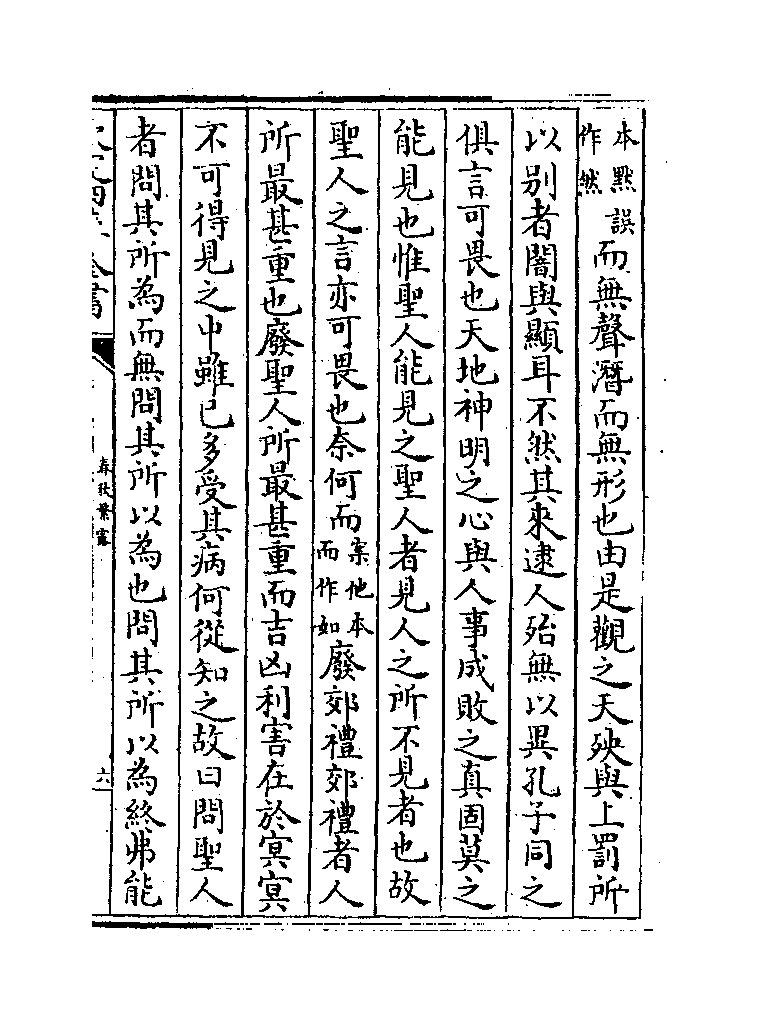 本黙誤作然而無聲潛而無形也由是觀之天殃與上罰所
以別者闇與顯耳不然其來逮人殆無以異孔子同之
俱言可畏也天地神明之心與人事成敗之真固莫之
能見也惟聖人能見之聖人者見人之所不見者也故
聖人之言亦可畏也奈何而案他本而作如廢郊禮郊禮者人
所最甚重也廢聖人所最甚重而吉凶利害在於冥冥
不可得見之中雖已多受其病何從知之故曰問聖人
者問其所為而無問其所以為也問其所以為終弗能
春秋繁露
六